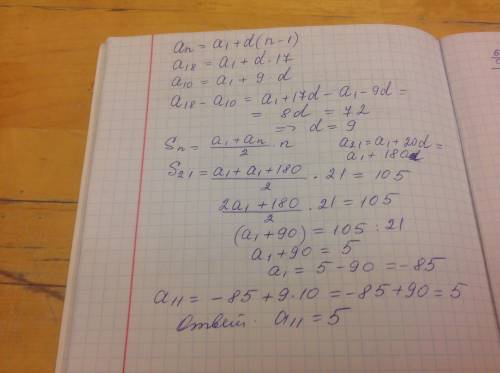 aₙ = a₁ + d(n-1)
a₁₈ = a₁ + d·17
a₁₀ = a₁ + 9·d
a₁₈ - a₁₀ = a₁ + 17d - a₁ - 9d =
= 8d = 72
=> d = 9
Sₙ = (a₁ + aₙ)/2 · n a₂₁ = a₁ + 20d =
a₁ + 180
S₂₁ = (a₁ + a₁ + 180)/2 · 21 = 105
(2a₁ + 180)/2 · 21 = 105
(a₁ + 90) = 105 : 21
a₁ + 90 = 5
a₁ = 5 - 90 = -85
a₁₁ = -85 + 9·10 = -85 + 90 = 5
Ответ. a₁₁ = 5